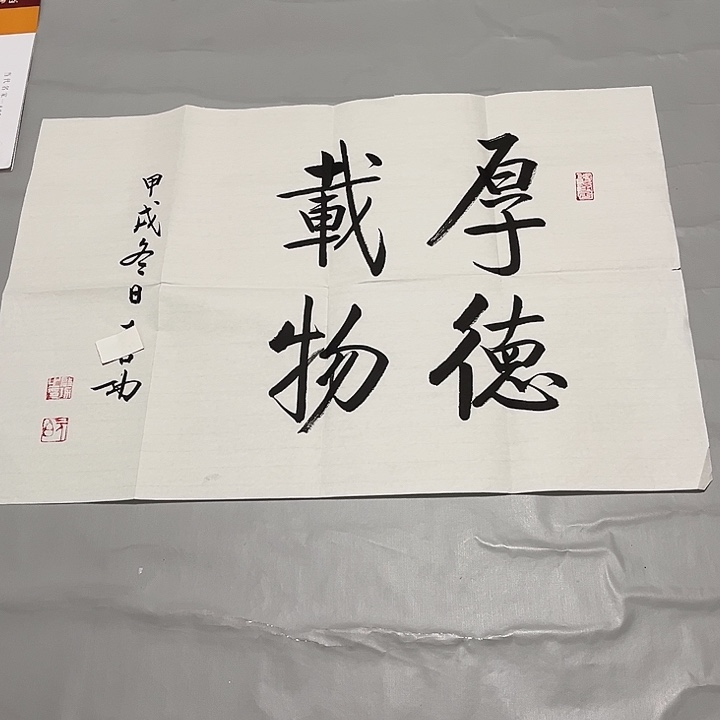 厚德
載物
甲戌冬日 功